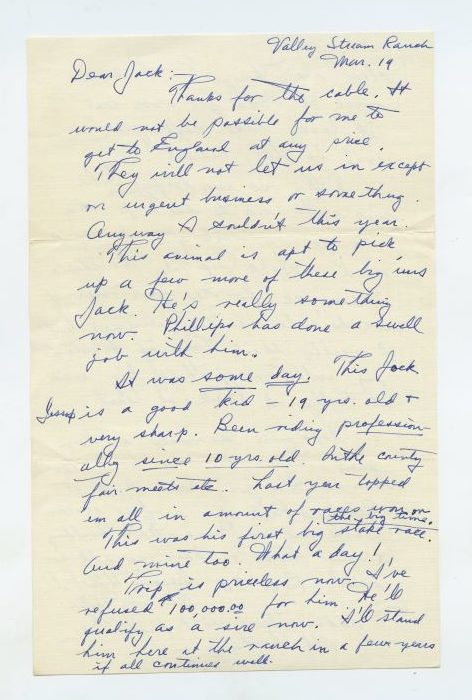 Valley Stream Ranch
Mar. 19
Dear Jack:
Thanks for the cable. It
would not be possible for me to
get to England at any price.
They will not let us in except
on urgent business or something.
Anyway I couldn't this year.
This animal is apt to pick
up a few more of these big 'uns
Jack. He's really something
now. Phillips has done a swell
job with him.
It was some day. This Jock
Jessup is a good kid - 19 yrs. old +
very sharp. Been riding profession-
ally since 10 yrs. old. In the county
fair meets etc. Last year topped
em all in amount of races won on
the big time.
This was his first big stake race.
And mine too. What a day!
Trip is priceless now. I've
refused $100,000.00 for him. He'll
qualify as a sire now. I'll stand
him here at the ranch in a few years
if all continues well.